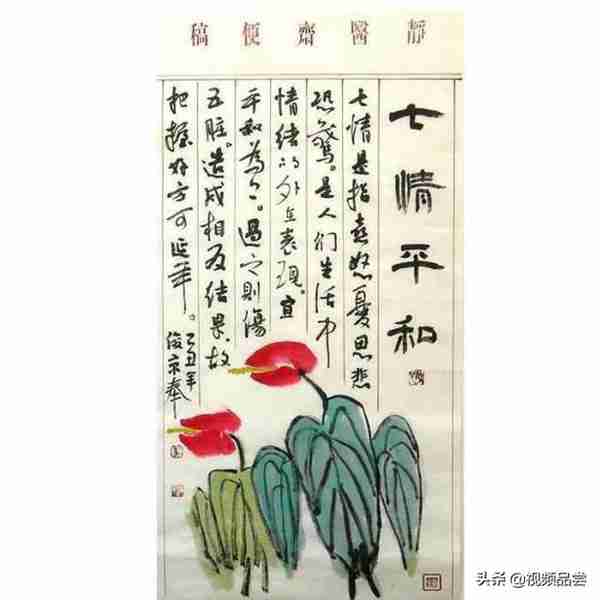 靜醫齋便稿
七情平和
七情是指喜怒憂思悲
恐驚。是人们生活中
情绪的外在表现。宜
平和為上。過之則傷
五脏。造成相反结果。故
把握好方可延年。
乙丑年
俊京奉
头条 @视频品尝